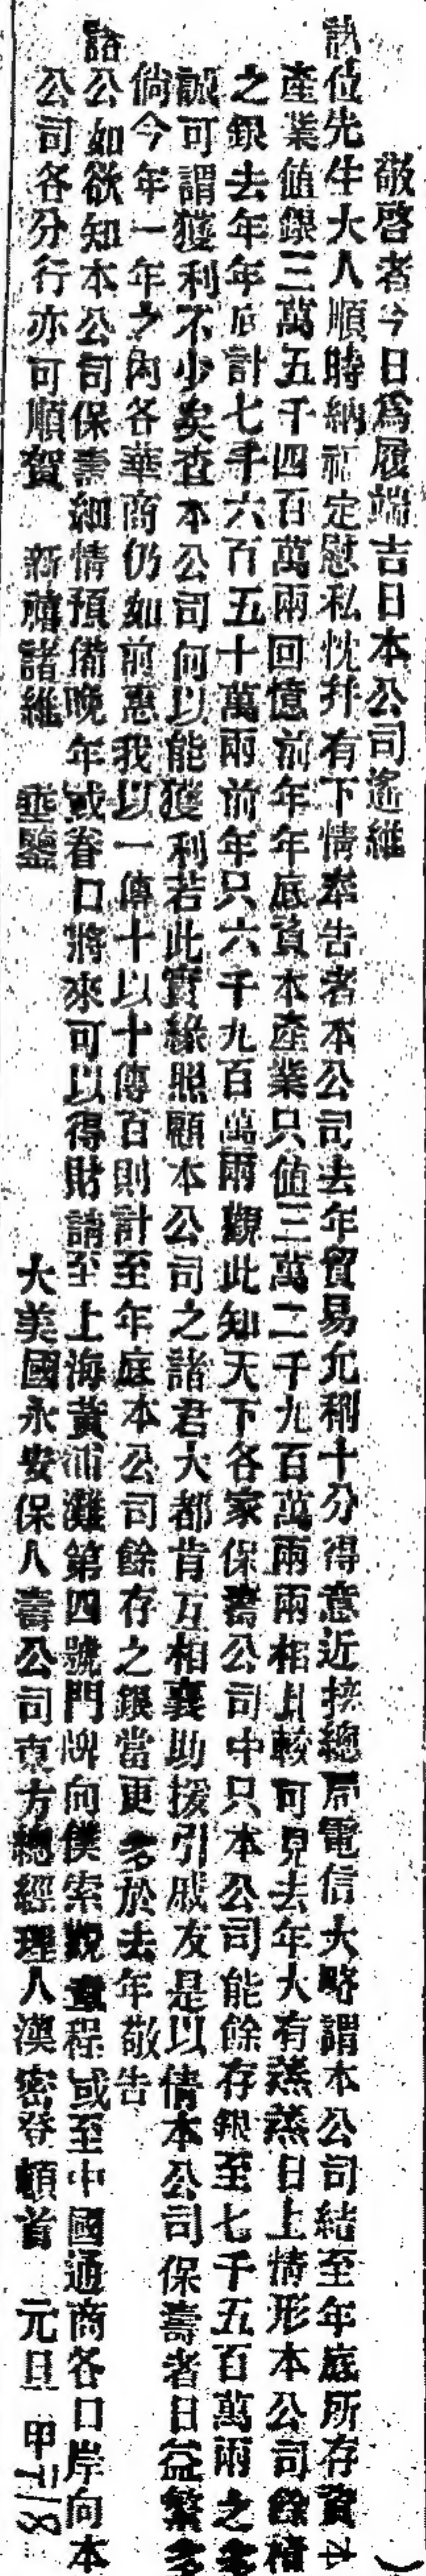 敬啓者今日爲履端吉日本公司遙維
諸位先生大人順時納祜定慰私忱幷有下情奉告者本公司去年貿易尤稱十分得意近接總局電信大略謂本公司結至年底所存資本
產業值銀三萬五千四百萬兩回憶前年年底資本產業只值三萬二千九百萬兩兩相比較可見去年大有蒸蒸日上情形本公司餘積
之銀去年年底計七千六百五十萬兩前年只六千九百萬兩觀此知天下各家保壽公司中只本公司能餘存銀至七千五百萬兩之多
誠可謂獲利不少矣查本公司何以能獲利若此實緣照顧本公司之諸君大都肯互相襄助援引戚友是以倩本公司保壽者日益繁多
倘今年一年之內各華商仍如前惠我以一傳十以十傳百則計至年底本公司餘存之銀當更多於去年敬告
諸公如欲知本公司保壽細情預備晚年或眷口將來可以得財請至上海黃浦灘第四號門牌向僕索觀章程或至中國通商各口岸向本
公司各分行亦可順賀　新禧諸維　垂鑒　大美國永安保人壽公司東方總經理人漢密登頓首　元旦　甲